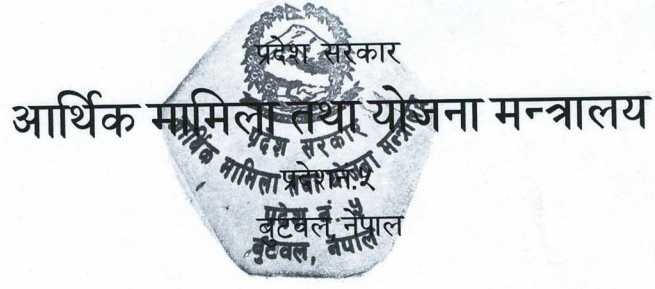 प्रदेश सरकार
आर्थिक मामिला तथा योजना मन्त्रालय
प्रदेश नं.५
बुटवल, नेपाल
प्रदेश सरकार
आर्थिक मामिला तथा योजना मन्त्रालय
प्रदेश नं. ५
बुटवल, नेपाल